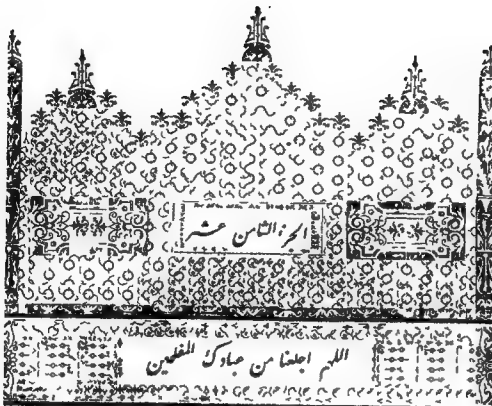 الجزء الثامن عشر
اللهم اجعلنا من عبادك المفلحين